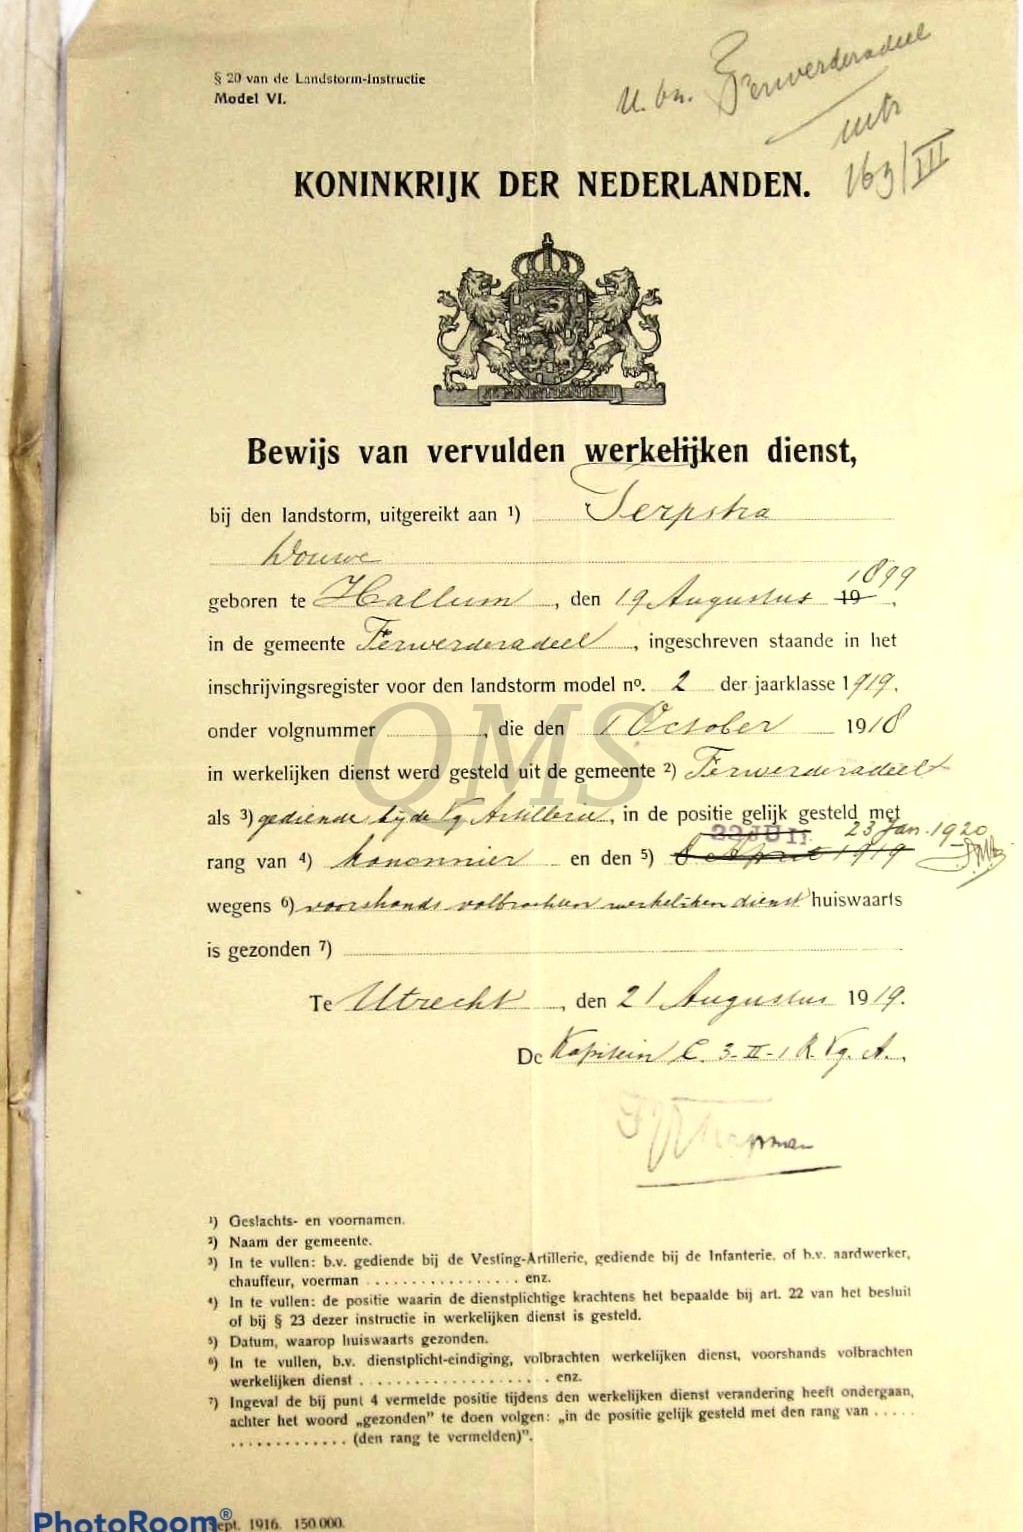 § 20 van de Landstorm-Instructie
Model VI.
U. bn. Ferwerderadeel
163/III
KONINKRIJK DER NEDERLANDEN.
Bewijs van vervulden werkelijken dienst,
bij den landstorm, uitgereikt aan ¹) Terpstra
Douwe
geboren te Hallum, den 19 Augustus 19 1899.
in de gemeente Ferwerderadeel, ingeschreven staande in het
inschrijvingsregister voor den landstorm model nº. 2 der jaarklasse 1919.
onder volgnummer , die den 1 October 1918
in werkelijken dienst werd gesteld uit de gemeente ²) Ferwerderadeel
als ³) gediende bij de Vg Artillerie, in de positie gelijk gesteld met
23 Jan. 1920
rang van ⁴) kanonnier en den ⁵) 8 April 1919
wegens ⁶) voorshands volbrachten werkelijken dienst huiswaarts
is gezonden ⁷)
Te Utrecht, den 21 Augustus 1919.
De Kapitein C. 3-II-1 R. Vg. A.
¹) Geslachts- en voornamen.
²) Naam der gemeente.
³) In te vullen: b.v. gediende bij de Vesting-Artillerie, gediende bij de Infanterie. of b.v. aardwerker,
chauffeur, voerman . . . . . . . . . . . . . . . . enz.
⁴) In te vullen: de positie waarin de dienstplichtige krachtens het bepaalde bij art. 22 van het besluit
of bij § 23 dezer instructie in werkelijken dienst is gesteld.
⁵) Datum, waarop huiswaarts gezonden.
⁶) In te vullen, b.v. dienstplicht-eindiging, volbrachten werkelijken dienst, voorshands volbrachten
werkelijken dienst . . . . . . . . . . . . . . . . . . . . enz.
⁷) Ingeval de bij punt 4 vermelde positie tijdens den werkelijken dienst verandering heeft ondergaan,
achter het woord „gezonden” te doen volgen: „in de positie gelijk gesteld met den rang van . . . . .
. . . . . . . . . . . . . (den rang te vermelden)”.
Sept. 1916. 150.000.
QMS
PhotoRoom®